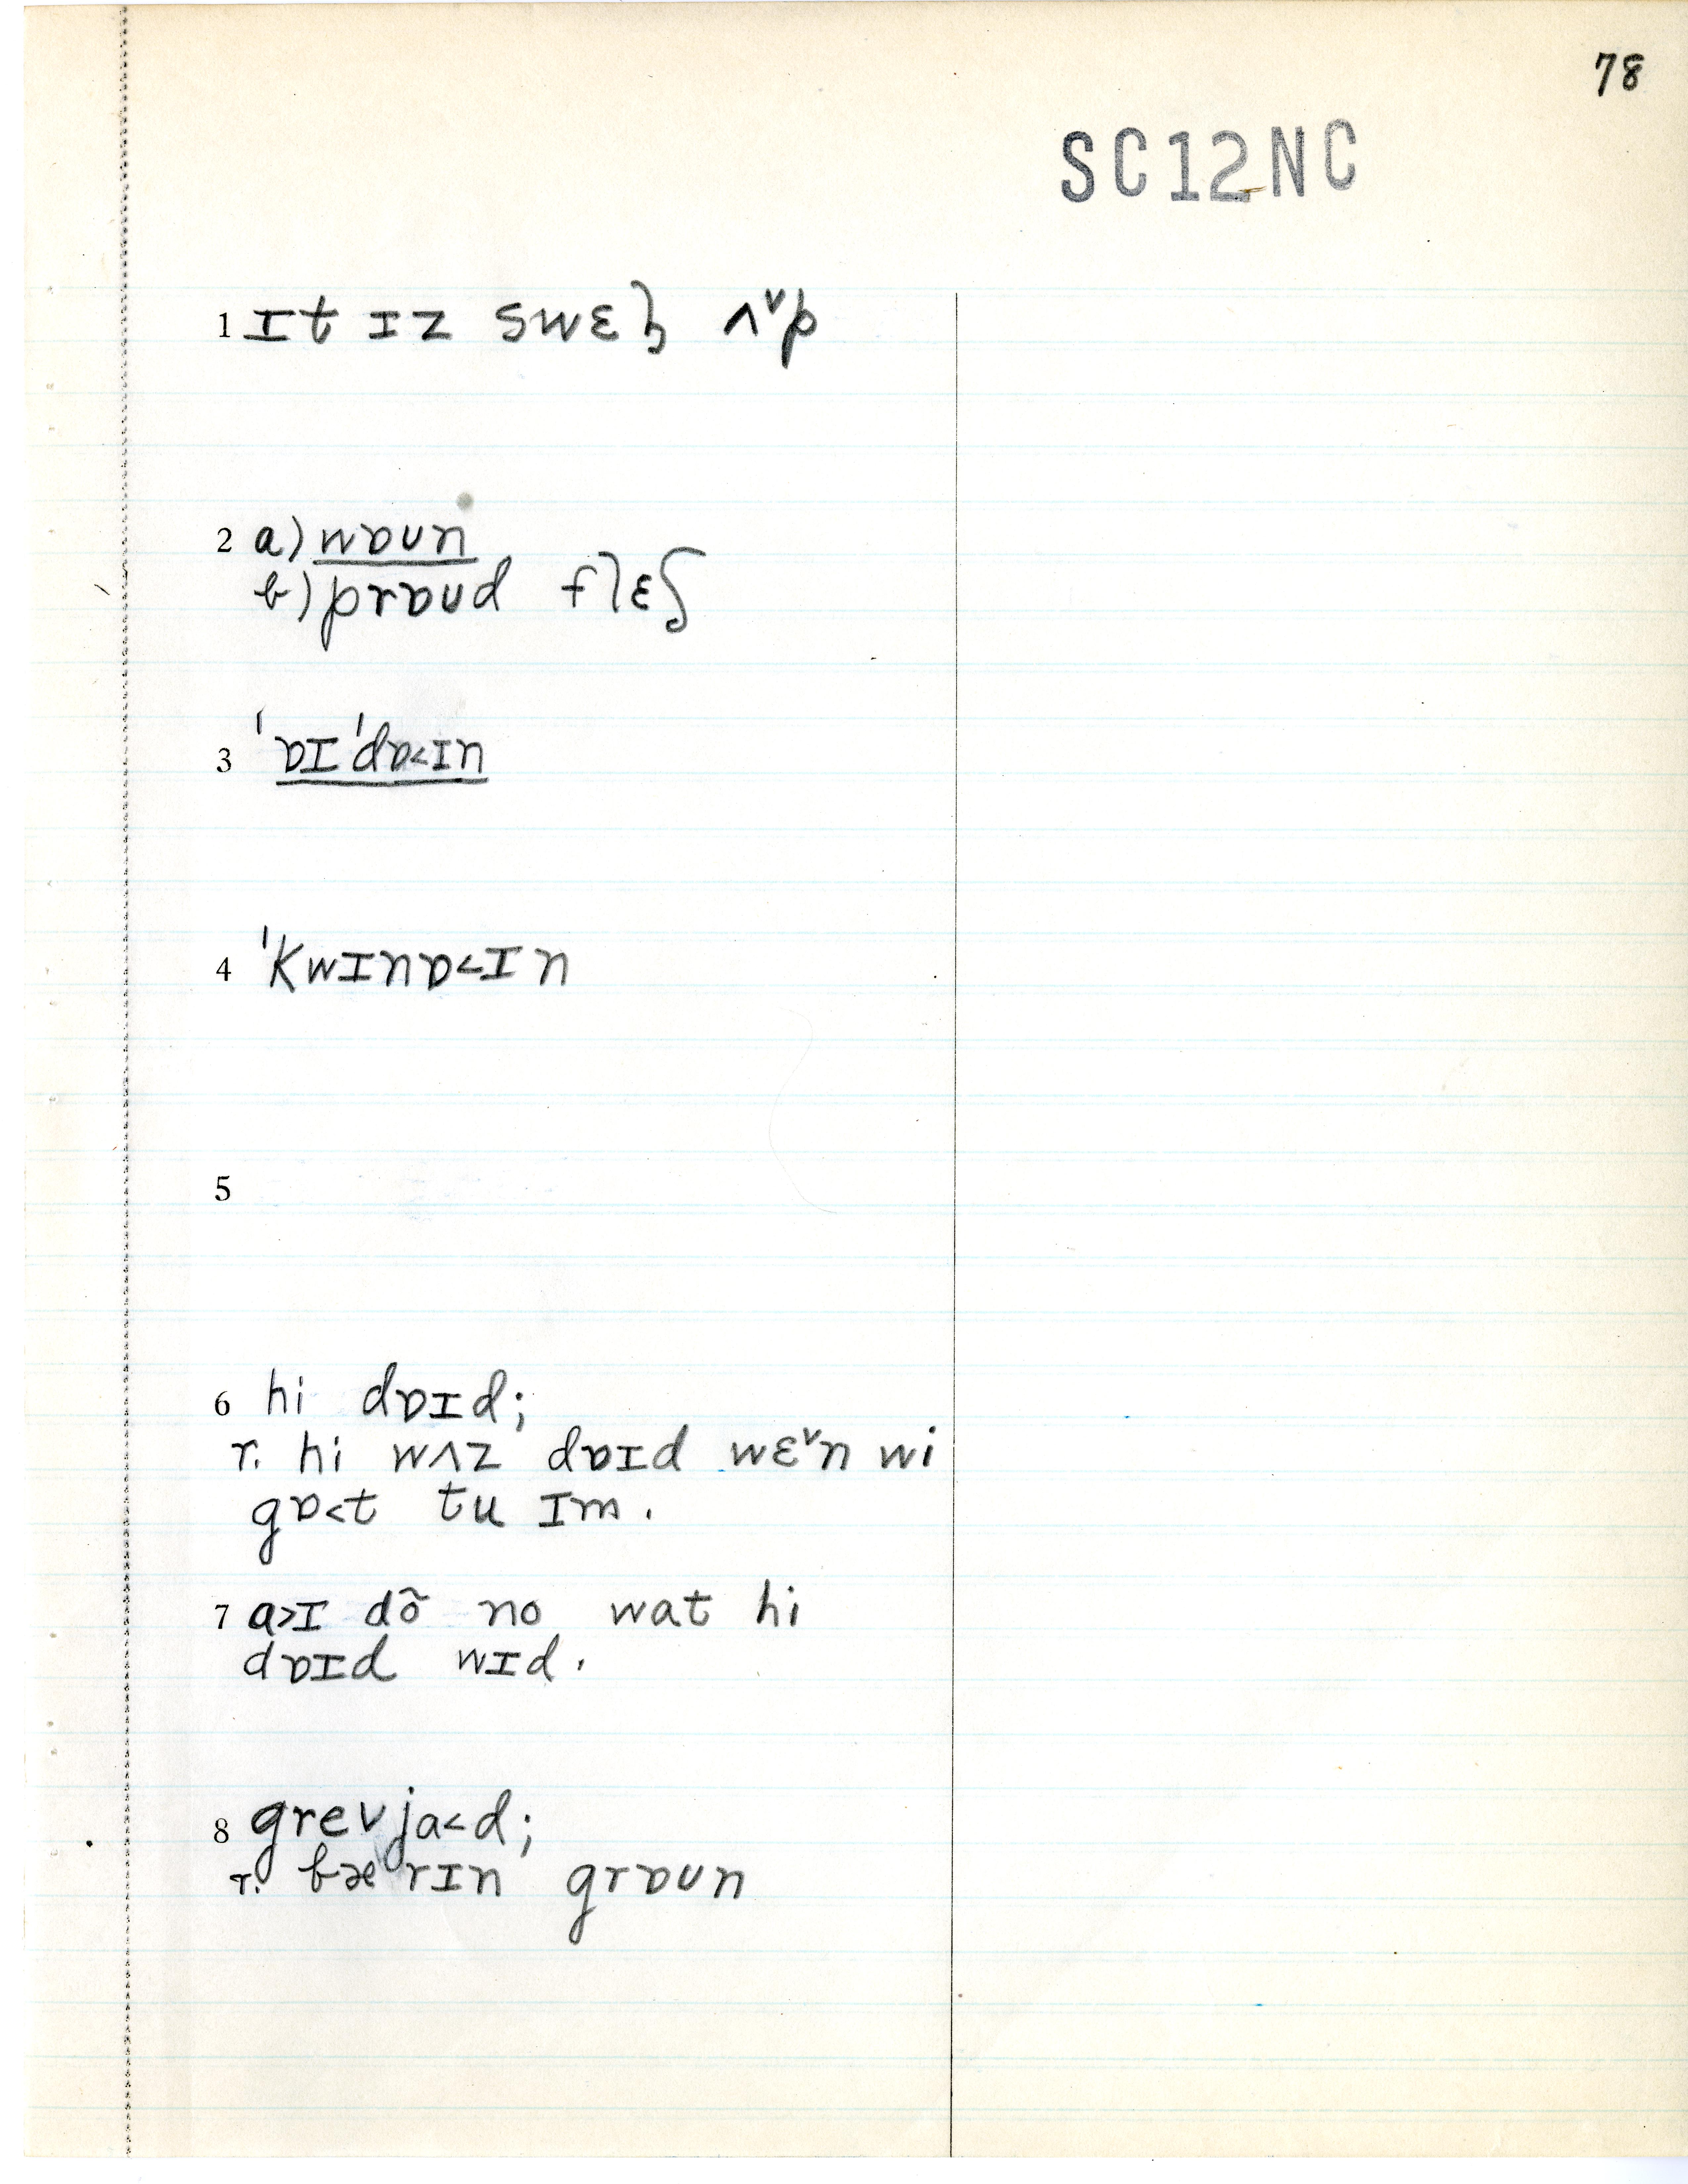 78
SC12NC
1 ɪt ɪz swɛl ʌ˅p
2 a) wɒun
b) prɒud flɛʃ
3 ˈɒɪˈdɒ˂ɪn
4 ˈkwɪnɒ˂ɪn
5
6 hi dɒɪd;
r. hi wʌz dɒɪd wɛ˅n wi
gɒ˂t tu ɪm.
7 a˃ɪ dõ no wat hi
dɒɪd wɪd.
8 grevja˂d;
r. bærɪn grɒun